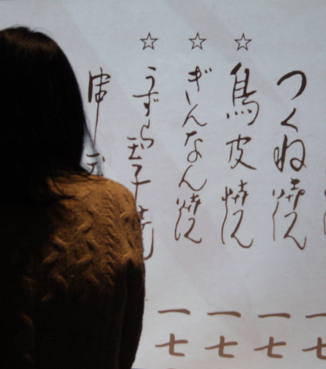 つくね焼 一七
☆鳥皮焼 一七
☆ぎんなん焼 一七
☆うずら玉子焼 一七
串